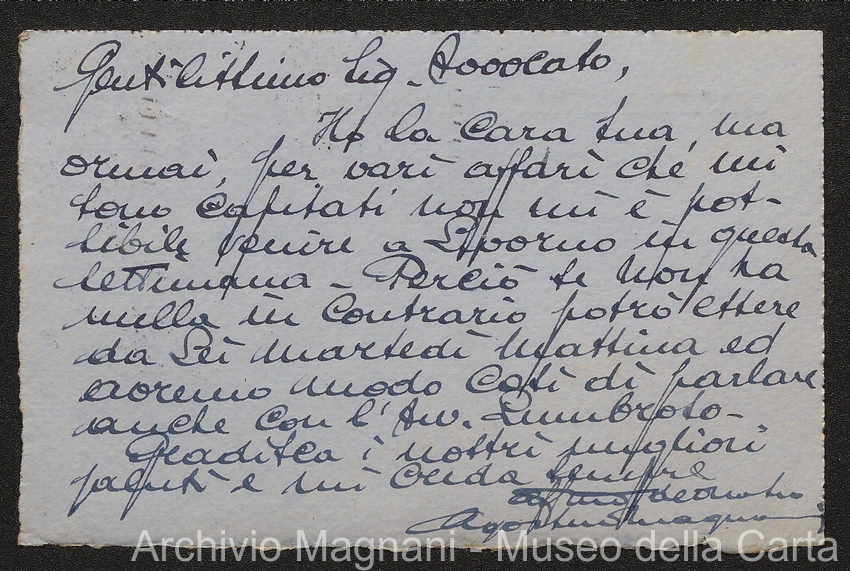 Gentilissimo Sig. Avvocato,
Ho la cara sua, ma
ormai, per vari affari che mi
sono capitati non mi è pos-
sibile venire a Livorno in questa
settimana - Perciò se non ha
nulla in contrario potrò essere
da Lei martedì mattina ed
avremo modo così di parlare
anche con l'Avv. Lumbroso -
Gradisca i nostri migliori
saluti e mi creda sempre
Archivio Magnani - Museo della Carta